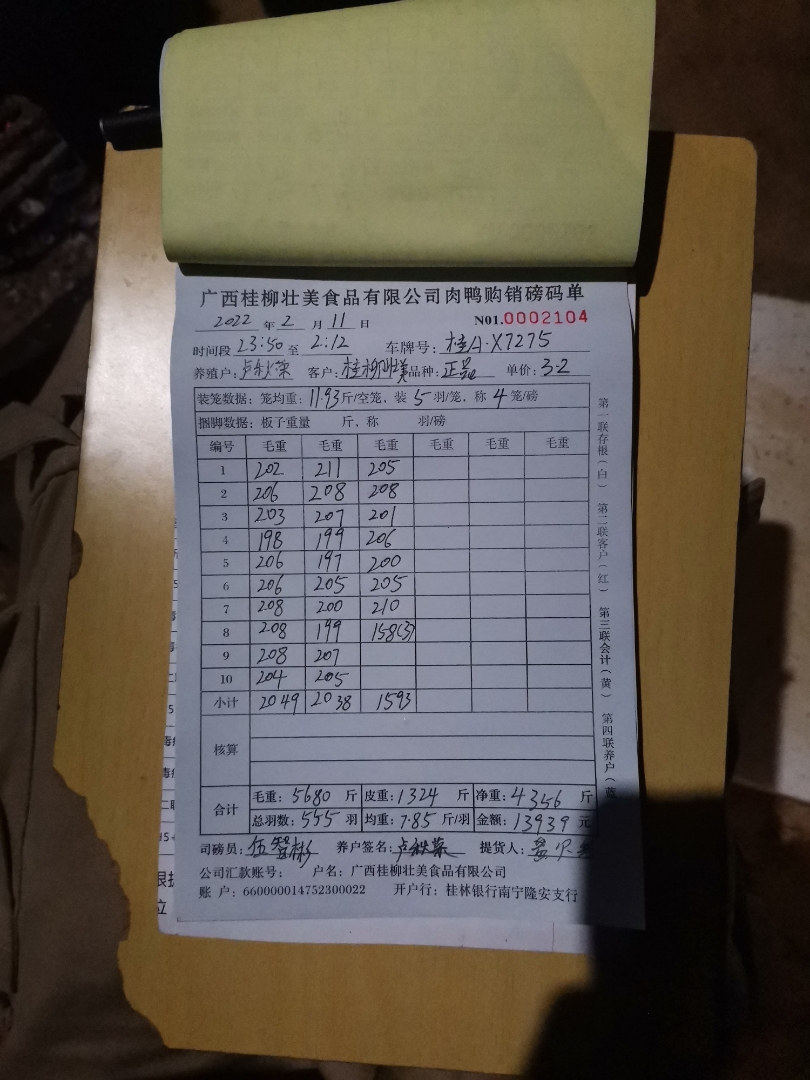 广西桂柳壮美食品有限公司肉鸭购销磅码单
2022 年 2 月 11 日 N01.0002104
时间段 23:50 至 2:12 车牌号: 桂A·X7275
养殖户: 客户: 桂柳壮美 品种: 正品 单价: 3.2
装笼数据: 笼均重: 11.93 斤/空笼, 装 5 羽/笼, 称 4 笼/磅
捆脚数据: 板子重量 斤, 称 羽/磅
编号 毛重 毛重 毛重 毛重 毛重 毛重
1 202 211 205
2 206 208 208
3 203 207 201
4 198 199 206
5 206 197 200
6 206 205 205
7 208 200 210
8 208 199 158(3)
9 208 207
10 204 205
小计 2049 2038 1593
核算
合计
毛重: 5680 斤 皮重: 1324 斤 净重: 4356 斤
总羽数: 555 羽 均重: 7.85 斤/羽 金额: 13939 元
司磅员: 伍智彬 养户签名: 提货人:
公司汇款账号: 户名: 广西桂柳壮美食品有限公司
账 户: 660000014752300022 开户行: 桂林银行南宁隆安支行
第一联存根(白) 第二联客户(红) 第三联会计(黄) 第四联养户(蓝